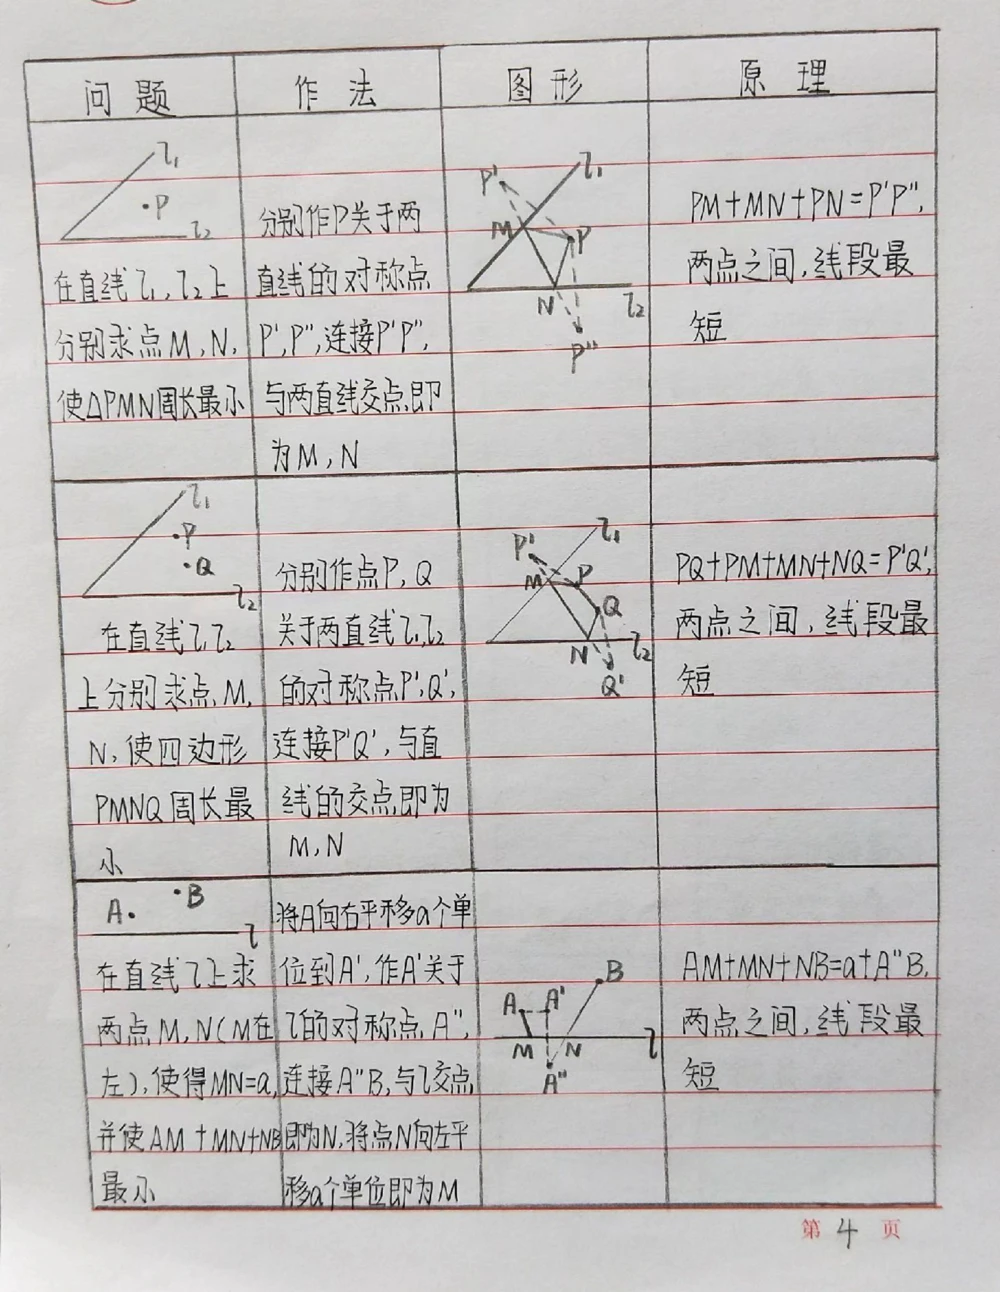 问题 作法 图形 原理
l₁
·P
l₂
在直线l₁,l₂上
分别求点M,N,
使△PMN周长最小
分别作P关于两
直线的对称点
P',P",连接P'P",
与两直线交点,即
为M,N
P' l₁
M P
N l₂
P"
PM+MN+PN=P'P",
两点之间,线段最
短
l₁
·P
·Q
l₂
在直线l₁l₂
上分别求点,M,
N,使四边形
PMNQ周长最
小
分别作点P,Q
关于两直线l₁,l₂
的对称点P',Q',
连接P'Q',与直
线的交点,即为
M,N
P' l₁
M P
Q
N l₂
Q'
PQ+PM+MN+NQ=P'Q',
两点之间,线段最
短
A· ·B
l
在直线l上求
两点M,N(M在
左),使得MN=a,
并使AM+MN+NB
最小
将A向右平移a个单
位到A',作A'关于
l的对称点,A",
连接A"B,与l交点,
即为N,将点N向左平
移a个单位即为M
B
A A'
M N l
A"
AM+MN+NB=a+A"B,
两点之间,线段最
短
第4页